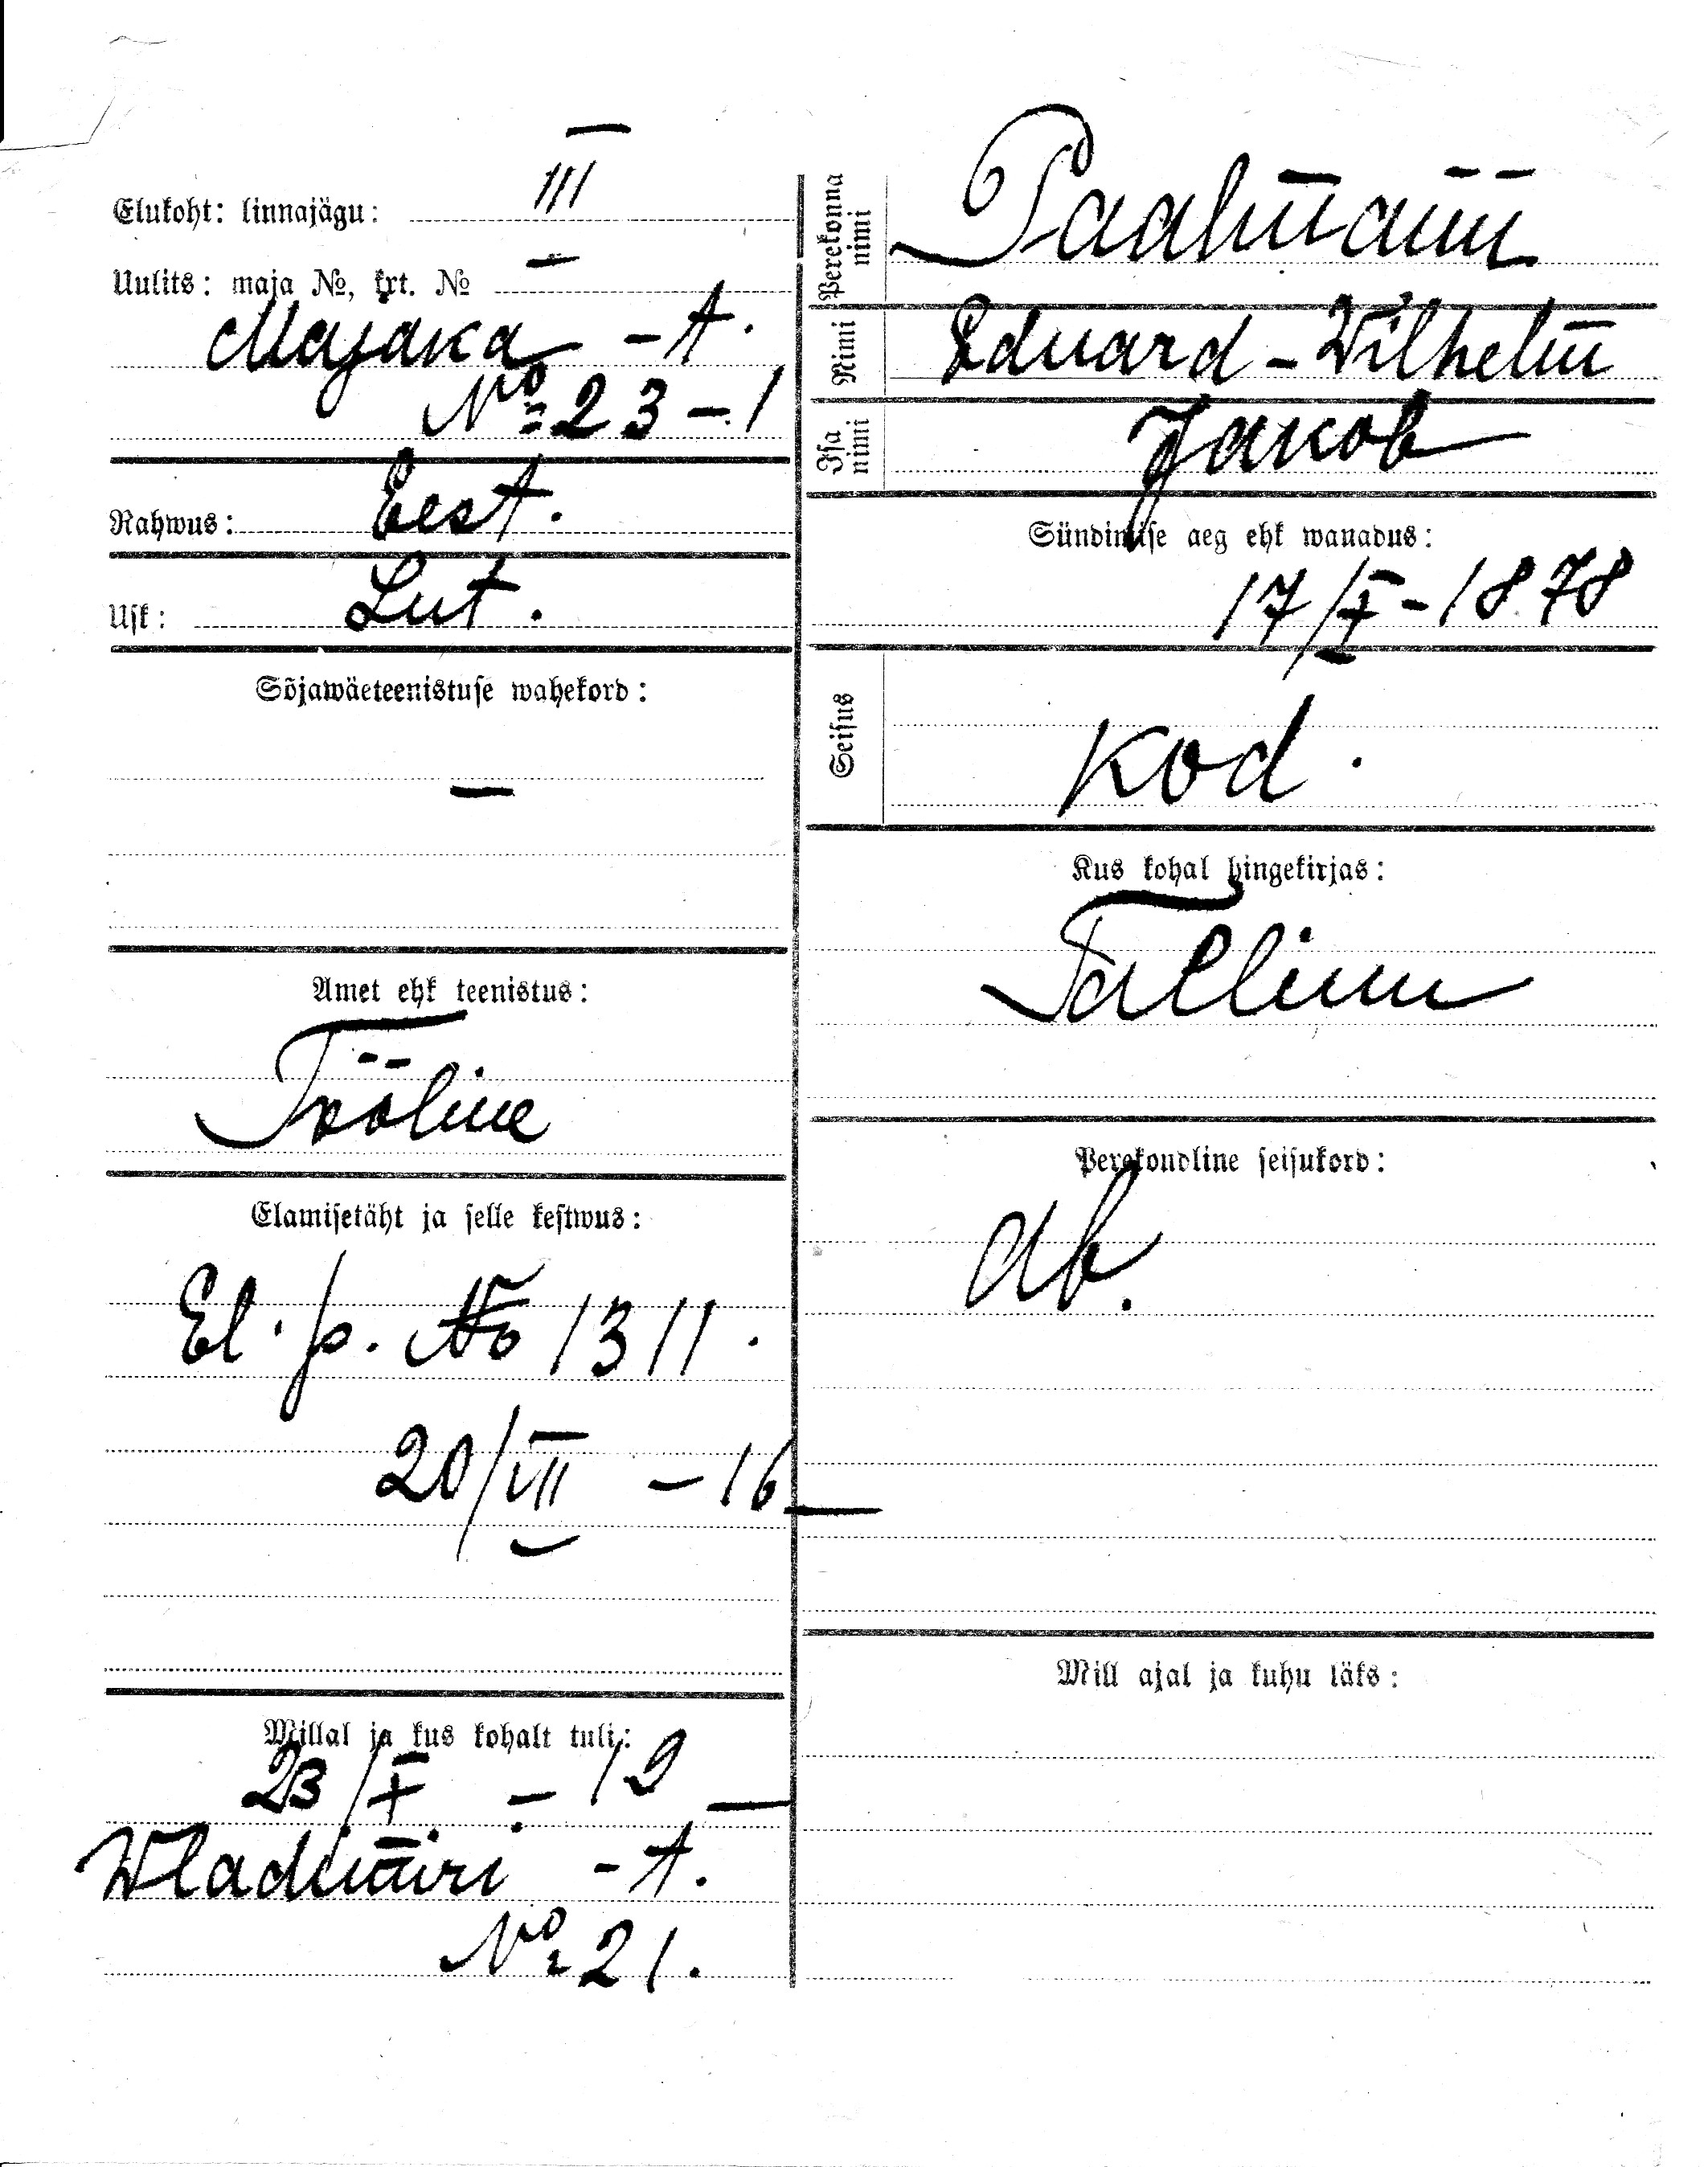 Elukoht: linnajägu: III
Uulits: maja №, krt. №
Majaka -t.
№ 23-1
Rahwus: Eest.
Usk: Lut.
Sõjawäeteenistuse wahekord:
—
Amet ehk teenistus:
Tööline
Elamisetäht ja selle kestwus:
El. p. No 1311.
20/VII - 16
Millal ja kus kohalt tuli:
23/X - 19
Wladimiri -t.
№ 21.
Perekonna nimi
Paalmann
Nimi
Eduard-Wilhelm
Isa nimi
Jakob
Sündimise aeg ehk wanadus:
17/X-1878
Seisus
Kod.
Kus kohal hingekirjas:
Tallinn
Perekondline seisukord:
Ab.
Mill ajal ja kuhu läks: